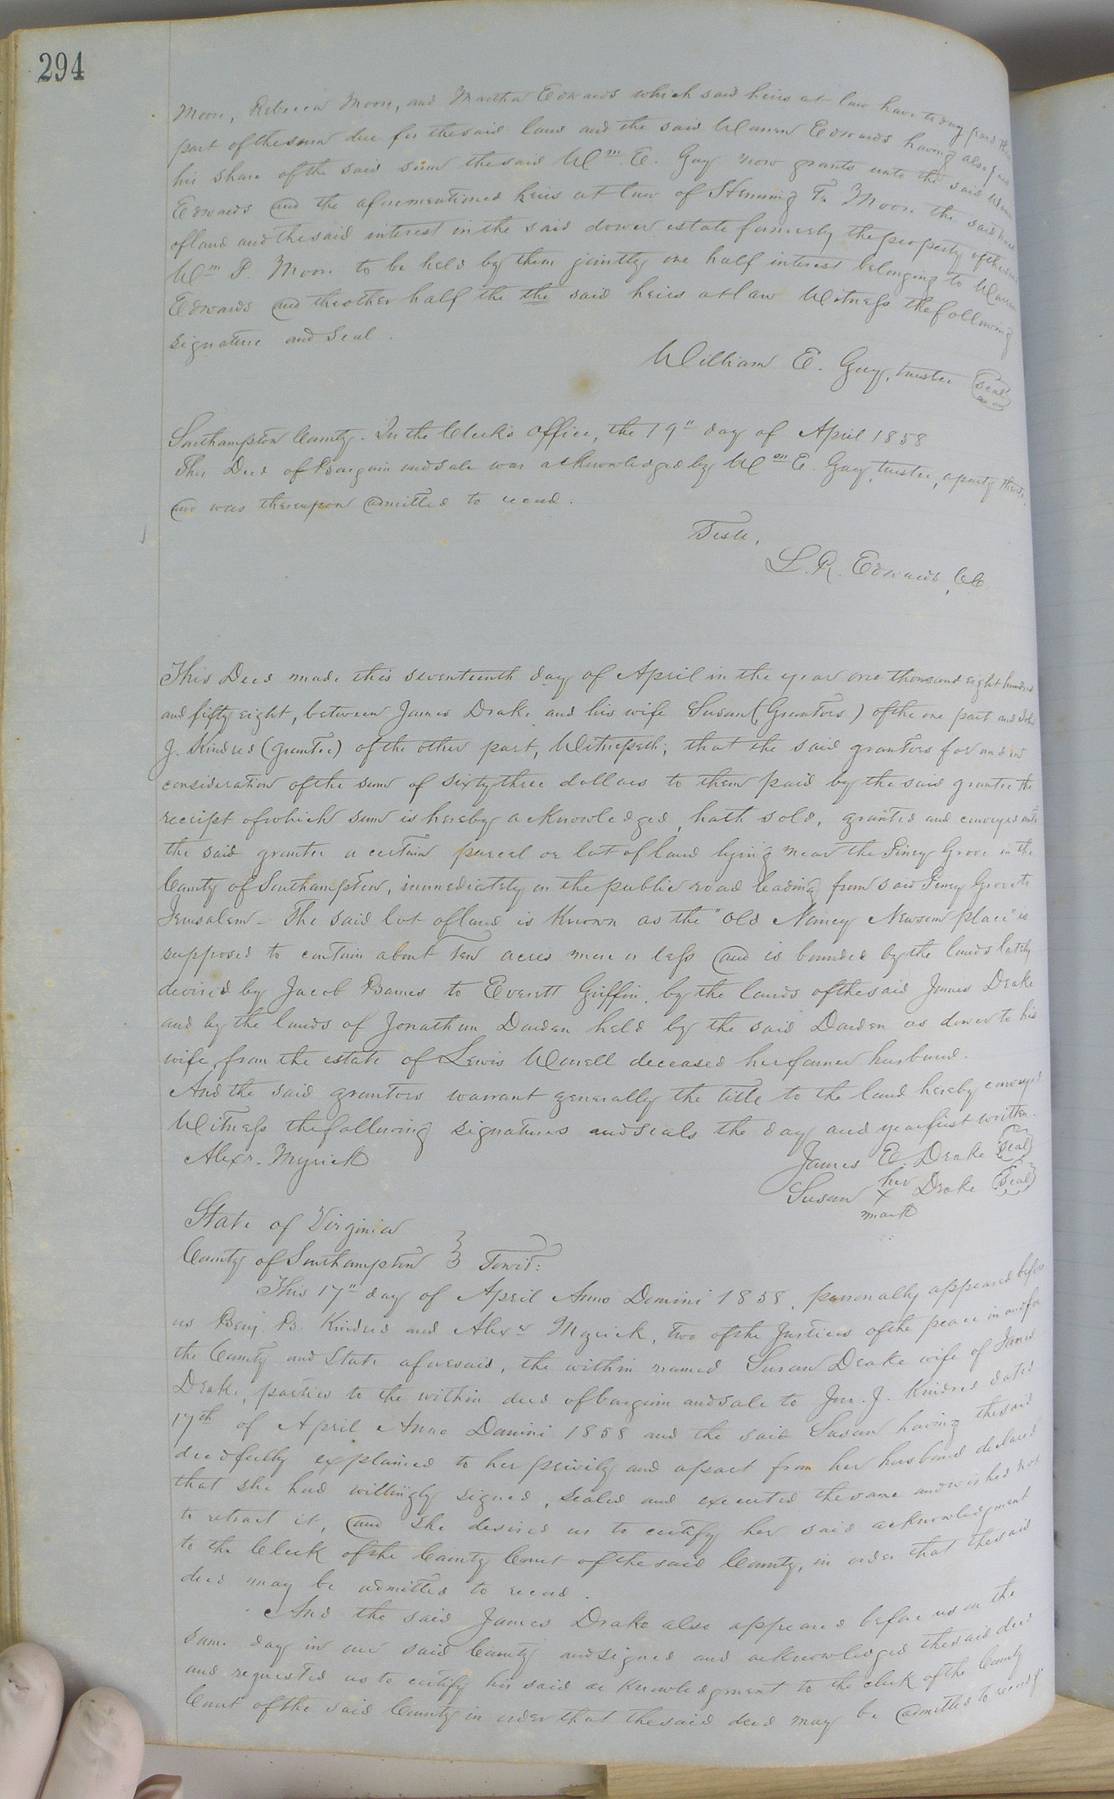 294
Moore, Rebecca Moore, and Martha Edwards which said heirs at law have to day paid their
part of the sum due for the said land and the said Warren Edwards having also paid
his share of the said sum the said Wm. E. Guy now grants unto the said Warren
Edwards and the aforementioned heirs at law of Fleming T. Moore the said tract
of land and the said interest in the said dower estate formerly the property of the said
Wm P. Moore to be held by them jointly one half interest belonging to Warren
Edwards and the other half the the said heirs at law Witness the following
signature and seal.
William E. Guy, trustee (Seal)
Southampton County. In the Clerk's office, the 19" day of April 1858
This Deed of Bargain and sale was acknowledged by Wm E. Guy, trustee, a party thereto
and was thereupon admitted to record.
Teste,
L. R. Edwards, CC
This Deed made this seventeenth day of April in the year one thousand eight hundred
and fifty eight, between James Drake and his wife Susan (Grantors) of the one part and John
J. Kindred (grantee) of the other part, Witnesseth; that the said grantors for and in
consideration of the sum of sixty three dollars to them paid by the said grantee the
receipt of which sum is hereby acknowledged, hath sold, granted and conveyed unto
the said grantee a certain parcel or lot of land lying near the Piney Grove in the
County of Southampton, immediately on the public road leading from said Piney Grove to
Jerusalem - The said lot of land is known as the "Old Nancy Newsom place" is
supposed to contain about ten acres more or less and is bounded by the lands lately
devised by Jacob Barnes to Everett Griffin, by the lands of the said James Drake
and by the lands of Jonathan Darden held by the said Darden as dower to his
wife, from the estate of Lewis Worrell deceased her former husband.
And the said grantors warrant generally the title to the land hereby conveyed
Witness the following signatures and seals the day and year first written
Alexr. Myrick James E Drake (Seal)
Susan her x mark Drake (Seal)
State of Virginia
County of Southampton } Towit:
This 17" day of April Anno Domini 1858, personally appeared before
us Benj. B. Kindred and Alexr Myrick, two of the Justices of the peace in and for
the County and State aforesaid, the within named Susan Drake wife of James
Drake, parties to the within deed of bargain and sale to Jno. J. Kindred dated
17th of April Anno Domini 1858 and the said Susan having the said
deed fully explained to her privily and apart from her husband declared
that she had willingly signed, sealed and executed the same and wished not
to retract it, and she desired us to certify her said acknowledgment
to the Clerk of the County Court of the said County, in order that the said
deed may be admitted to record.
And the said James Drake also appeared before us on the
same day in our said County and signed and acknowledged the said deed
and requested us to certify his said acknowledgment to the clerk of the County
Court of the said County in order that the said deed may be admitted to record